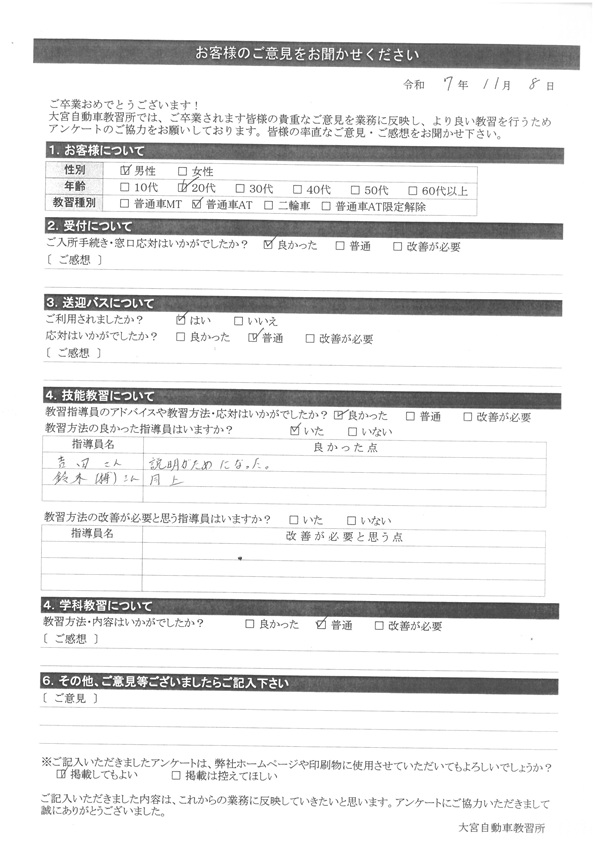 お客様のご意見をお聞かせください
令和 7 年 11 月 8 日
ご卒業おめでとうございます！
大宮自動車教習所では、ご卒業されます皆様の貴重なご意見を業務に反映し、より良い教習を行うため
アンケートのご協力をお願いしております。皆様の率直なご意見・ご感想をお聞かせ下さい。
1. お客様について
性別 ☑ 男性 □ 女性
年齢 □ 10代 ☑ 20代 □ 30代 □ 40代 □ 50代 □ 60代以上
教習種別 □ 普通車MT ☑ 普通車AT □ 二輪車 □ 普通車AT限定解除
2. 受付について
ご入所手続き・窓口応対はいかがでしたか？ ☑ 良かった □ 普通 □ 改善が必要
［ ご感想 ］
3. 送迎バスについて
ご利用されましたか？ ☑ はい □ いいえ
応対はいかがでしたか？ □ 良かった ☑ 普通 □ 改善が必要
［ ご感想 ］
4. 技能教習について
教習指導員のアドバイスや教習方法・応対はいかがでしたか？ ☑ 良かった □ 普通 □ 改善が必要
教習方法の良かった指導員はいますか？ ☑ いた □ いない
指導員名 良かった点
さん 説明がためになった。
鈴木 さん 同上
教習方法の改善が必要と思う指導員はいますか？ □ いた □ いない
指導員名 改善が必要と思う点
4. 学科教習について
教習方法・内容はいかがでしたか？ □ 良かった ☑ 普通 □ 改善が必要
［ ご感想 ］
6. その他、ご意見等ございましたらご記入下さい
［ ご意見 ］
※ご記入いただきましたアンケートは、弊社ホームページや印刷物に使用させていただいてもよろしいでしょうか？
☑ 掲載してもよい □ 掲載は控えてほしい
ご記入いただきました内容は、これからの業務に反映していきたいと思います。アンケートにご協力いただきまして
誠にありがとうございました。
大宮自動車教習所